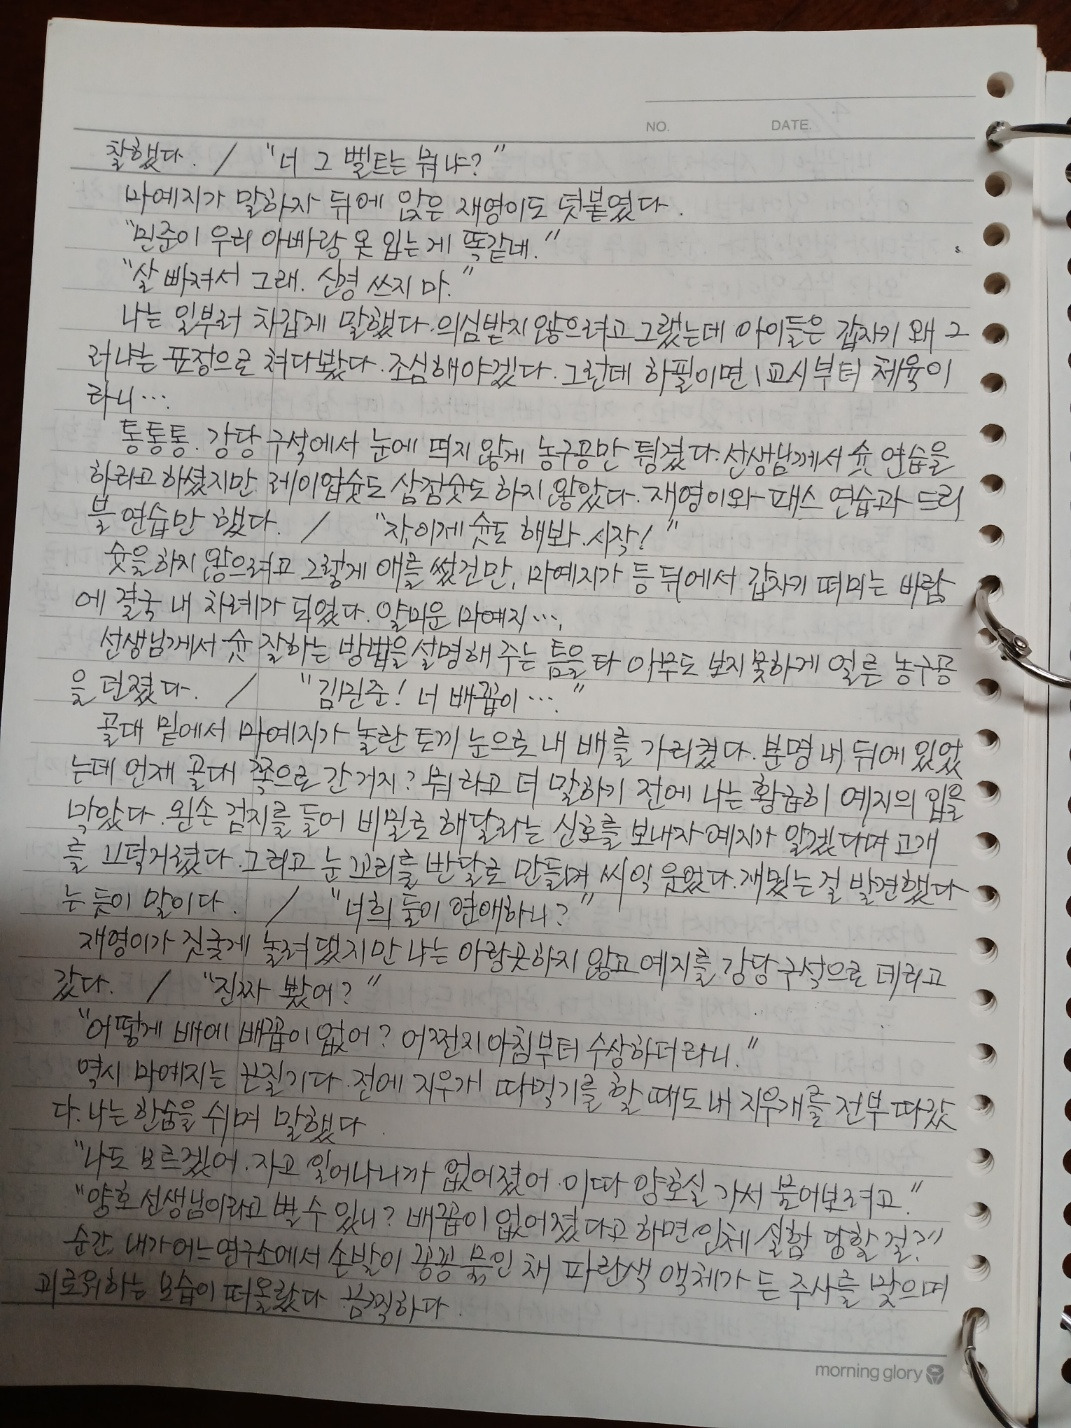 NO. DATE.
찰했다. / "너 그 벨트는 뭐냐?"
마예지가 말하자 뒤에 앉은 재영이도 덧붙였다.
"민준이 우리 아빠랑 옷 입는 게 똑같네."
"살 빠져서 그래. 신경 쓰지 마."
나는 일부러 차갑게 말했다. 의심받지 않으려고 그랬는데 아이들은 갑자기 왜 그
러냐는 표정으로 쳐다봤다. 조심해야겠다. 그런데 하필이면 1교시부터 체육이
라니…
통통통. 강당 구석에서 눈에 띄지 않게 농구공만 튕겼다. 선생님께서 슛 연습을
하라고 하셨지만 레이업슛도 삼점슛도 하지 않았다. 재영이와 패스 연습과 드리
블 연습만 했다. / "자, 이제 슛도 해봐. 시작!"
슛을 하지 않으려고 그렇게 애를 썼건만, 마예지가 등 뒤에서 갑자기 떠미는 바람
에 결국 내 차례가 되었다. 얄미운 마예지….
선생님께서 슛 잘하는 방법을 설명해 주는 틈을 타 아무도 보지 못하게 얼른 농구공
을 던졌다. / "김민준! 너 배꼽이…."
골대 밑에서 마예지가 놀란 토끼 눈으로 내 배를 가리켰다. 분명 내 뒤에 있었
는데 언제 골대 쪽으로 간 거지? 뭐라고 더 말하기 전에 나는 황급히 예지의 입을
막았다. 왼손 검지를 들어 비밀로 해달라는 신호를 보내자 예지가 알겠다며 고개
를 끄덕거렸다. 그리고 눈 꼬리를 반달로 만들며 씨익 웃었다. 재밌는 걸 발견했다
는 듯이 말이다. / "너희 둘이 연애하니?"
재영이가 짓궂게 놀려 댔지만 나는 아랑곳하지 않고 예지를 강당 구석으로 데리고
갔다. / "진짜 봤어?"
"어떻게 배에 배꼽이 없어? 어쩐지 아침부터 수상하더라니."
역시 마예지는 끈질기다. 전에 지우개 따먹기를 할 때도 내 지우개를 전부 따갔
다. 나는 한숨을 쉬며 말했다.
"나도 모르겠어. 자고 일어나니까 없어졌어. 이따 양호실 가서 물어보려고."
"양호 선생님이라고 별 수 있니? 배꼽이 없어졌다고 하면 인체 실험 당할 걸?"
순간 내가 어느 연구소에서 손발이 꽁꽁 묶인 채 파란색 액체가 든 주사를 맞으며
괴로워하는 모습이 떠올랐다. 끔찍하다.
morning glory